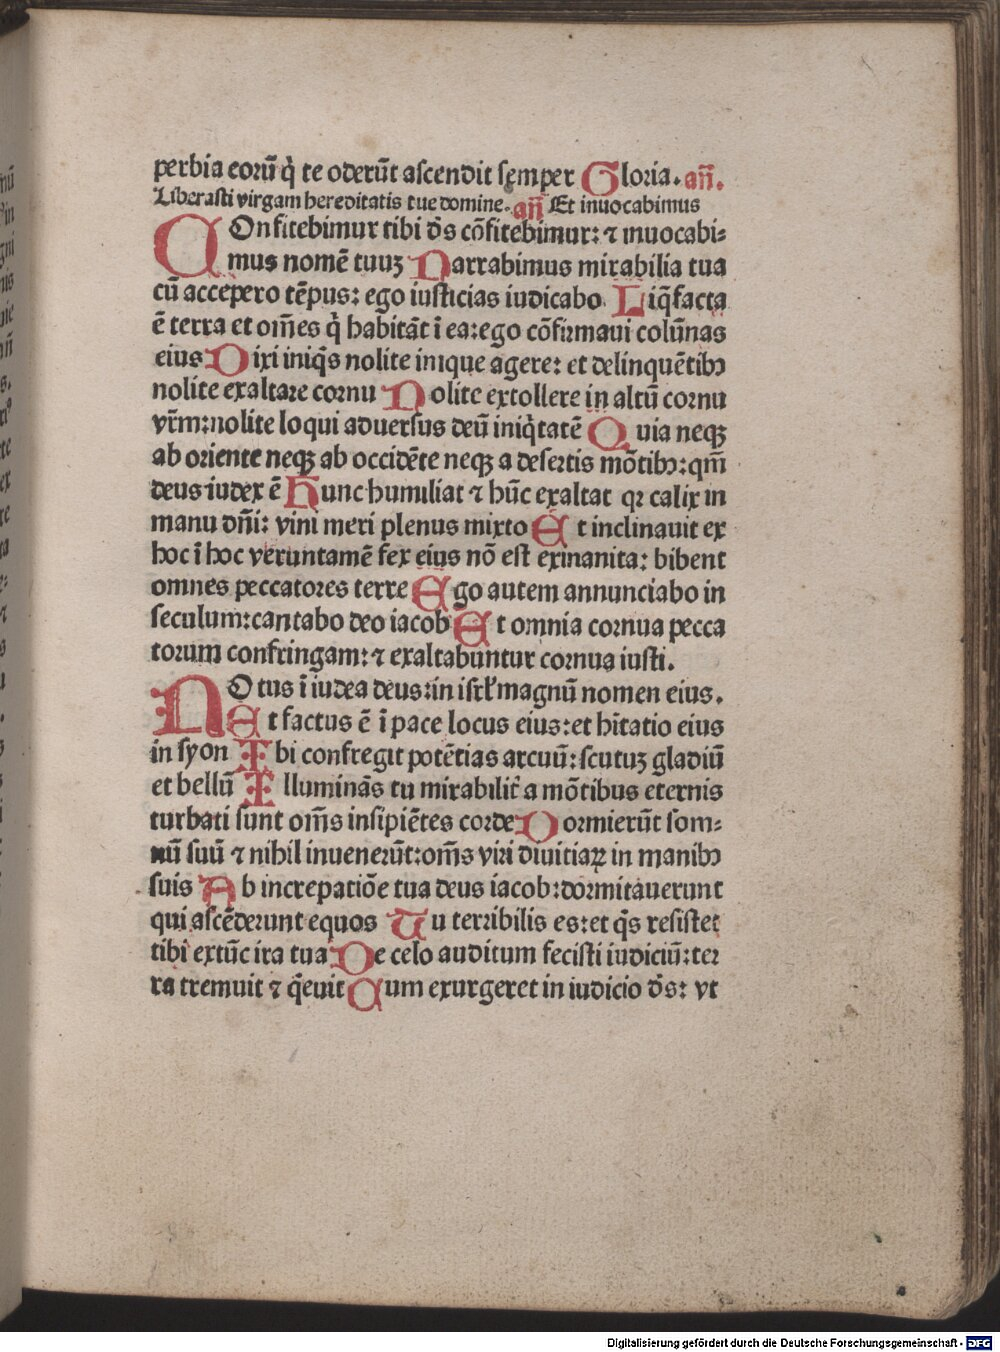 perbia eorū q̇ te oderūt ascendit semper Gloria. an̄.
Liberasti virgam hereditatis tue domine. an̄ Et inuocabimus
COnfitebimur tibi d̄s cōfitebimur: ⁊ inuocabi⸗
mus nomē tuuꝫ Narrabimus mirabilia tua
cū accepero tēpus: ego iusticias iudicabo Liq̄facta
ē terra et om̄es q̇ habitāt ī ea: ego cōfirmaui colūnas
eius Dixi iniq̄s nolite inique agere: et delinquētibꝰ
nolite exaltare cornu Nolite extollere in altū cornu
vr̄m: nolite loqui aduersus deū iniq̇tatē Quia neqꝫ
ab oriente neqꝫ ab occidēte neqꝫ a desertis mōtibꝰ: qm̄
deus iudex ē Hunc humiliat ⁊ hūc exaltat qꝛ calix in
manu dn̄i: vini meri plenus mixto Et inclinauit ex
hoc ī hoc veruntamē fex eius nō est exinanita: bibent
omnes peccatores terre Ego autem annunciabo in
seculum: cantabo deo iacob Et omnia cornua pecca
torum confringam: ⁊ exaltabuntur cornua iusti.
NOtus ī iudea deus: in isrl̄ magnū nomen eius.
Et factus ē ī pace locus eius: et hītatio eius
in syon Ibi confregit potētias arcuū: scutuꝫ gladiū
et bellū Illuminās tu mirabilit̄ a mōtibus eternis
turbati sunt om̄s insipiētes corde Dormierūt som⸗
nū suū ⁊ nihil inuenerūt: om̄s viri diuitiaꝝ in manibꝰ
suis Ab increpatiōe tua deus iacob: dormitauerunt
qui ascēderunt equos Tu terribilis es: et q̄s resistet
tibi extūc ira tua De celo auditum fecisti iudiciū: ter
ra tremuit ⁊ q̄euit Cum exurgeret in iudicio d̄s: vt
Digitalisierung gefördert durch die Deutsche Forschungsgemeinschaft - DFG